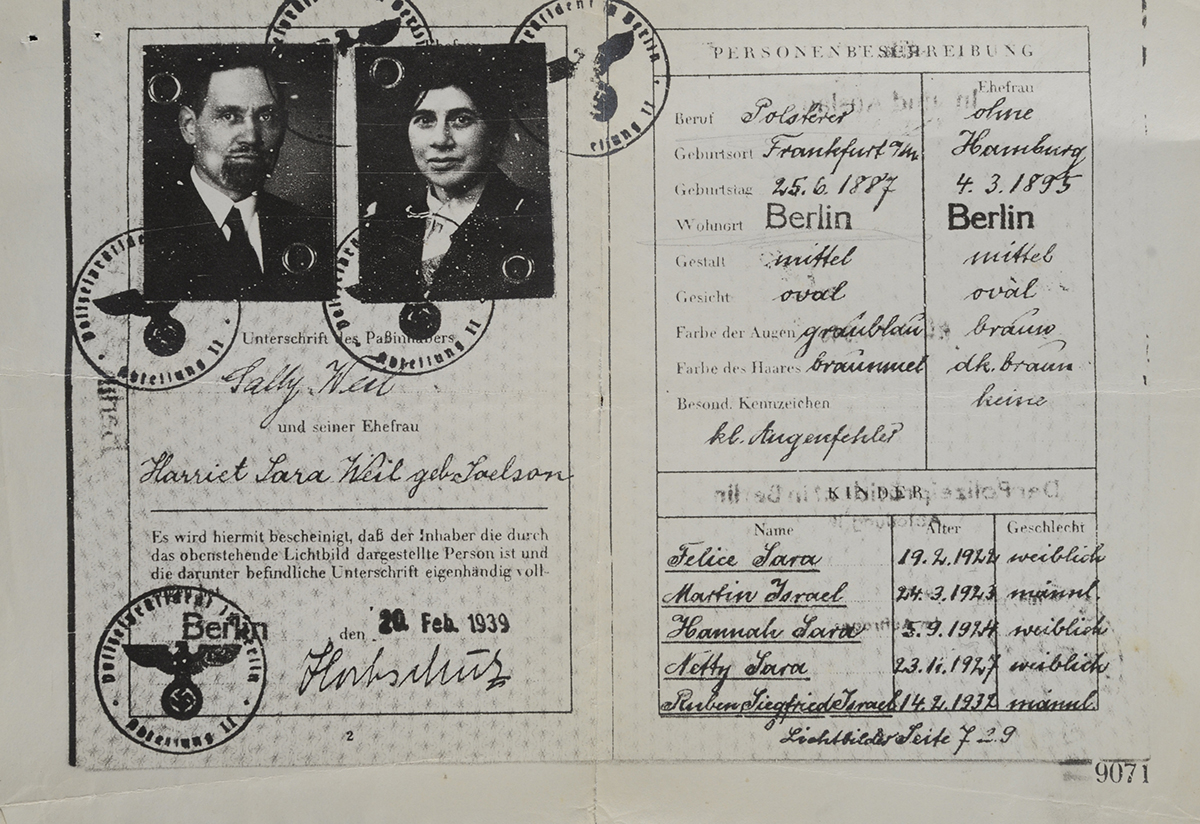 Ehefrau
Polizeipräsident in Berlin
Abteilung II
Unterschrift des Paßinhabers
Sally Weil
und seiner Ehefrau
Harriet Sara Weil geb. Joelson
Es wird hiermit bescheinigt, daß der Inhaber die durch
das obenstehende Lichtbild dargestellte Person ist und
die darunter befindliche Unterschrift eigenhändig voll-
Polizeipräsident in Berlin
Abteilung II
Berlin, den 20. Feb. 1939
2
PERSONENBESCHREIBUNG
Ehefrau
Beruf Polsterer ohne
Geburtsort Frankfurt a/M Hamburg
Geburtstag 25.6.1887 4.3.1895
Wohnort Berlin Berlin
Gestalt mittel mittel
Gesicht oval oval
Farbe der Augen graublau braun
Farbe des Haares braunmel dk. braun
Besond. Kennzeichen keine
kl. Augenfehler
KINDER
Name Alter Geschlecht
Felice Sara 19.2.1922 weiblich
Martin Israel 24.3.1923 männl.
Hannah Sara 3.9.1924 weiblich
Netty Sara 23.11.1927 weiblich
Ruben Siegfried Israel 14.2.1932 männl.
Lichtbilder Seite 7 - 9
9071